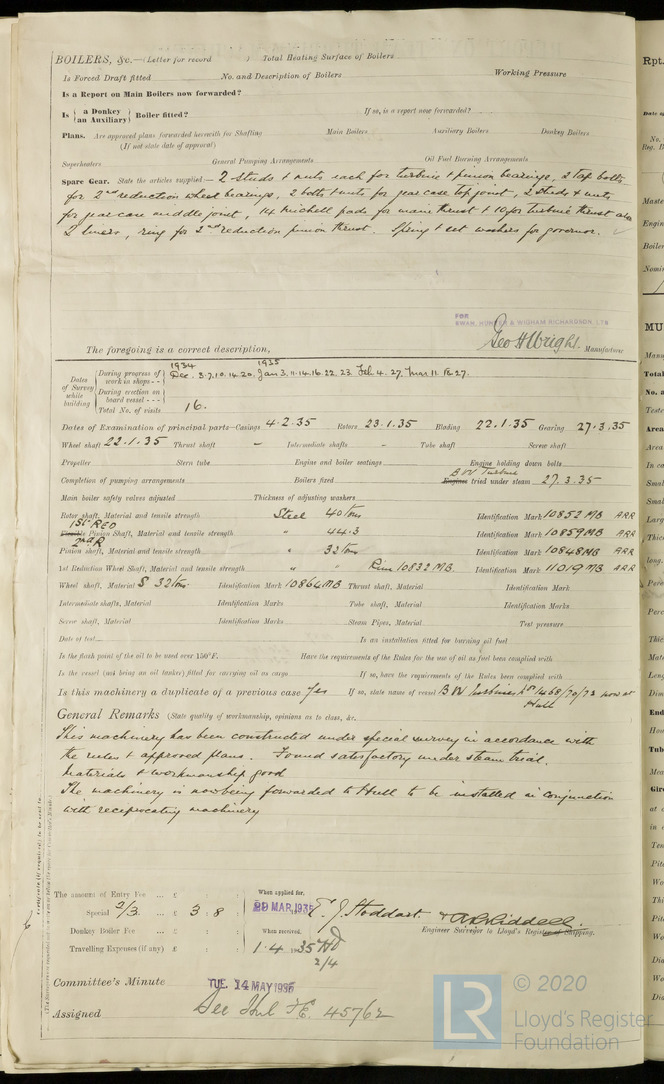 BOILERS, &c.—(Letter for record ) Total Heating Surface of Boilers
Is Forced Draft fitted No. and Description of Boilers Working Pressure
Is a Report on Main Boilers now forwarded?
Is { a Donkey / an Auxiliary } Boiler fitted? If so, is a report now forwarded?
Plans. Are approved plans forwarded herewith for Shafting Main Boilers Auxiliary Boilers Donkey Boilers
(If not state date of approval)
Superheaters General Pumping Arrangements Oil Fuel Burning Arrangements
Spare Gear. State the articles supplied:— 2 studs & nuts each for turbine & pinion bearings, 2 top bolts
for 2nd reduction wheel bearings, 2 bolts & nuts for gear case top joint, 2 studs & nuts
for gear case middle joint, 14 michell pads for main thrust & 10 for turbine thrust also
2 liners, ring for 2nd reduction pinion thrust. Spring & set washers for governor.
FOR
SWAN, HUNTER & WIGHAM RICHARDSON, LTD
Geo H Wright.
The foregoing is a correct description, Manufacturer
1934 1935
Dates of Survey while building
During progress of work in shops - - Dec. 3.7.10.14.20. Jan 3.11.14.16.22.23. Feb 4.27. Mar 11. 18.27.
During erection on board vessel - - -
Total No. of visits 16.
Dates of Examination of principal parts—Casings 4.2.35 Rotors 23.1.35 Blading 22.1.35 Gearing 27.3.35
Wheel shaft 22.1.35 Thrust shaft - Intermediate shafts - Tube shaft Screw shaft
Propeller Stern tube Engine and boiler seatings Engine holding down bolts
Completion of pumping arrangements Boilers fixed B W Turbine Engines tried under steam 27.3.35
Main boiler safety valves adjusted Thickness of adjusting washers
Rotor shaft, Material and tensile strength Steel 40 tons Identification Mark 10852 MB ARR
1st RED Pinion Shaft, Material and tensile strength " 44.3 Identification Mark 10859 MB ARR
2nd R Pinion shaft, Material and tensile strength " 32 tons Identification Mark 10848 MB ARR
1st Reduction Wheel Shaft, Material and tensile strength " " Rim 10832 MB. Identification Mark 11019 MB ARR
Wheel shaft, Material S 32 tons Identification Mark 10864 MB Thrust shaft, Material Identification Mark
Intermediate shafts, Material Identification Marks Tube shaft, Material Identification Marks
Screw shaft, Material Identification Marks Steam Pipes, Material Test pressure
Date of test Is an installation fitted for burning oil fuel
Is the flash point of the oil to be used over 150°F. Have the requirements of the Rules for the use of oil as fuel been complied with
Is the vessel (not being an oil tanker) fitted for carrying oil as cargo If so, have the requirements of the Rules been complied with
Is this machinery a duplicate of a previous case Yes If so, state name of vessel B W turbines Nos 1468/70/72 now at
Hull
General Remarks (State quality of workmanship, opinions as to class, &c.
This machinery has been constructed under special survey in accordance with
the rules & approved plans. Found satisfactory under steam trial.
Materials & workmanship good
The machinery is now being forwarded to Hull to be installed in conjunction
with reciprocating machinery
The amount of Entry Fee ... £ : : When applied for,
Special 2/3. £ 3 : 8 : 29 MAR 1935 E. J. Stoddart & A.R. Riddell.
Donkey Boiler Fee ... £ : : When received, Engineer Surveyor to Lloyd's Register of Shipping.
Travelling Expenses (if any) £ : : 1.4.1935
2/4
Committee's Minute TUE. 14 MAY 1935
Assigned See Hul F.E. 45762
LR © 2020
Lloyd's Register
Foundation
Rpt.